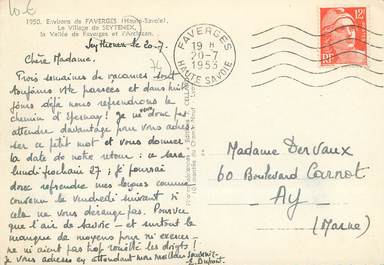 10 €
1950. Environs de FAVERGES (Haute-Savoie).
Le Village de SEYTENEX,
la Vallée de Faverges et l'Arclosan.
Seythenex le 20-7.
74
Chère Madame.
Trois semaines de vacances sont
toujours vite passées et dans huit
jours déjà nous reprendrons le
chemin d'Epernay! Je ne veux pas
attendre davantage pour vous adres-
ser ce petit mot et vous donner
la date de notre retour : ce sera
lundi prochain 27 ; je pourrai
donc reprendre mes leçons comme
convenu le vendredi suivant si
cela ne vous dérange pas. Pourvu
que l'air de Savoie - et surtout le
manque de moyens pour m'y exercer -
ne m'aient pas trop rouillé les doigts!
Je vous adresse en attendant mon meilleur souvenir.
E. Dupont
FAVERGES
19 H
20-7
1953
HAUTE SAVOIE
12F
RF
Madame Dervaux
60 Boulevard Carnot
Ay
(Marne)